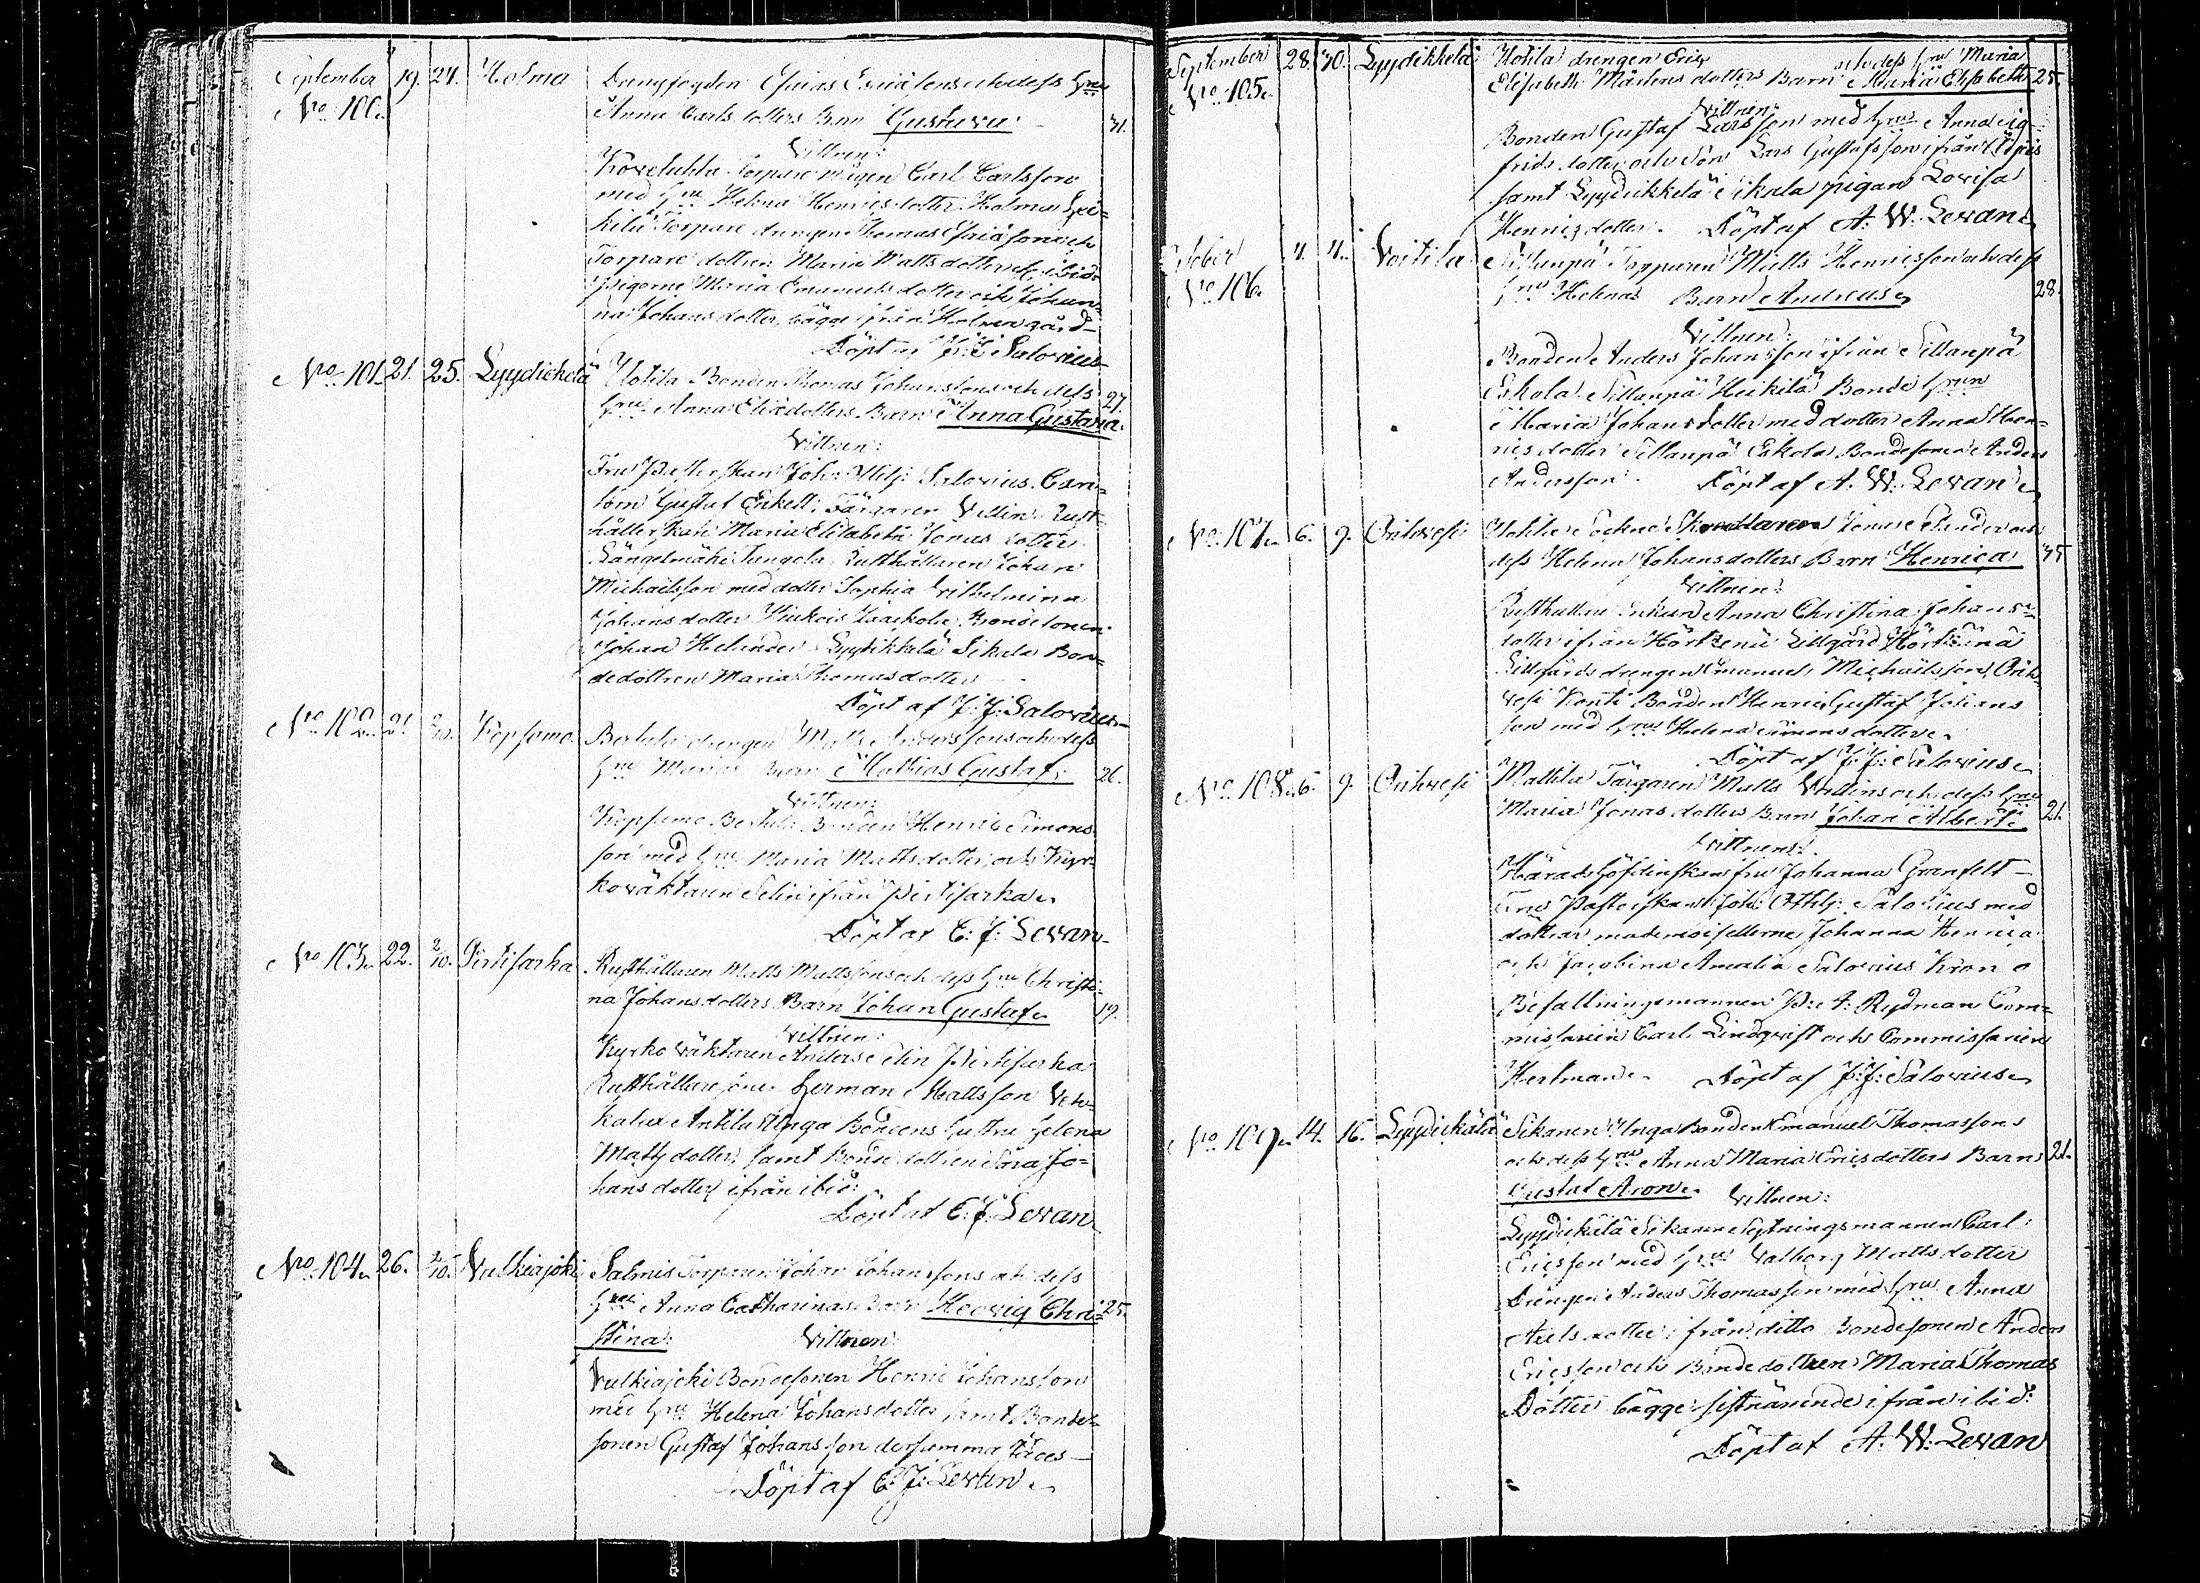 September 19. 24. Holma Drengfogden Esaias och dess Hru
No 100. Anna Carls dotters Barn Gustava 31.
Vittnen:
Torpare Carl Carlsson
med Hru Helena Henrics dotter Holma Hei=
kilä Torpare drengen Thomas Esaiasson och
Torpare dottren Maria Matts dotter
Pigorne Maria Emanuels dotter och Johan=
na Johans dotter, bägge ifrån Holma gård
Döpt af J: J: Salovius
No 101. 21. 25. Lyydickelä Uotila Bonden Thomas Johanssons och dess 27.
Hru Anna Ericsdotters Barn Anna Gustava.
Vittnen:
Fru Pastorskan Joh: Salovius. Can=
torn Gustaf Enkell; Färgaren Vellin Rust=
hållerskan Maria Elisabeth Jonas dotter
Längelmäki Rusthållaren Johan
Michaelsson med dotter Sophia Vilhelmina
Johans dotter Bondesonen
Johan Helander Lyydikkelä Sikala Bon=
dedottren Maria Thomas dotter
Döpt af J: J: Salovius
No 102. 21. 2/10. Kopsamo Bertula drengen Matts Anderssons och dess
Hru Marias Barn Mathias Gustaf. 26.
Vittnen:
Kopsamo Bertula Bonden Henric Simons
son med Hru Maria Mattsdotter och Kyr=
koväktaren Selin ifrån Pirtisarka
Döpt af C: J: Levan
No 103. 22. 2/10. Pirtisarka Rusthållaren Matts Mattssons och dess Hru Christi=
na Johans dotters Barn Johan Gustaf. 19.
Vittnen:
Kyrko väktaren Anders Selin Pirtisarka
Rusthållare sonen Herman Mattsson Veh=
kalax Anttila Unga Bondens hustru Helena
Matts dotter, samt Bonde dottren Jo=
hans dotter ifrån ibid:
Döpt af C: J: Levan
No 104. 26. 2/10. Valkiajoki Salmis Torparen Johan Johanssons och dess
Hru Anna Catharinas Barn Hedvig Chri= 25.
stina: Vittnen:
Valkiajoki Bondesonen Henric Johansson
med Hru Helena Johansdotter samt Bonde=
sonen Gustaf Johansson dersamma städes
Döpt af C: J: Levan
September 28. 30. Lyydikkelä Uotila drengen Erics och dess Hru Maria
No 105. Elisabeth Mårtens dotters Barn Maria Elisabeth 25.
Vittnen:
Bonden Gustaf Larsson med Hru Anna Sig=
frids dotter och Son Lars Gustafsson ifrån
samt Lyydikkelä Sikala pigan Lovisa
Henrics dotter. Döpt af A. W. Levan
October 4. 4. Voitila Sillanpä Torparen Matts Henricssons och dess
No 106. Hru Helenas Barn Andreas 28.
Vittnen:
Bonden Anders Johansson ifrån Sillanpä
Eskola Sillanpä Heikilä Bonde hrun
Maria Johans dotter med dotter Anna Hen=
rics dotter Sillanpä Eskola Bondesonen Anders
Andersson. Döpt af A. W. Levan
No 107. 6. 9. Orihvesi Uotila Socken Skomakaren och
dess Helena Johans dotters Barn Henrica 35
Vittnen:
Rusthållare Enkan Anna Christina Johans=
dotter ifrån Hörtzenä Lillgård Hörtzenä
Lillgårds drengen Emanuel Michaelsson, Orih=
vesi Bonden Henric Gustaf Johans
son med Hru Helena Simons dotter.
Döpt af J: J: Salovius
No 108. 6. 9. Orihvesi Mattila Färgaren Matts Vellins och dess Hru
Maria Jonas dotters Barn Johan Albert: 21.
Vittnen:
Häradshöfdinskan fru Johanna Granfelt
Fru Pastorskan Joh: Salovius med
döttrar mademoisellerne Johanna Henrica
och Jacobina Amalia Salovius Krono
Befallningsmannen P: A: Rydman Com=
missarien Carl Lindqvist och Commissarien
Hertman. Döpt af J: J: Salovius
No 109. 14. 16. Lyydickälä Sikanen Unga Bonden Emanuel Thomassons
och dess Hru Anna Maria Ericsdotters Barn 21.
Gustaf Aron. Vittnen:
Lyydickälä Sikanen Sextningsmannen Carl
Ericsson med Hru Valborg Matts dotter
Drengen Anders Thomasson med Hru Anna
Axels dotter ifrån ditto Bondesonen Anders
Ericsson och Bonde dottren Maria Thomas
Dotter bägge sistnämnde ifrån ibid:
Döpt af A. W. Levan